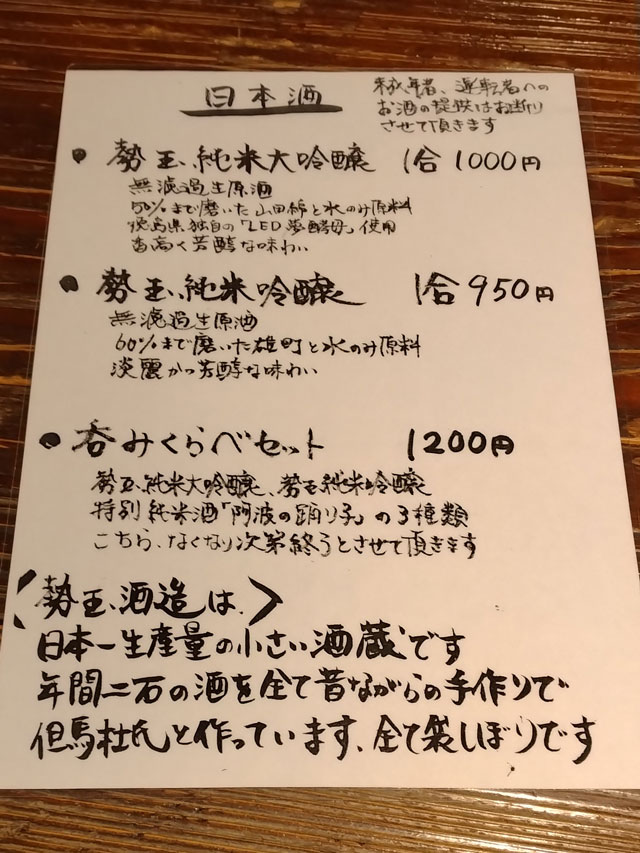 日本酒
未成年者、運転者への
お酒の提供はお断り
させて頂きます
● 勢玉、純米大吟醸 1合 1000円
無濾過生原酒
50%まで磨いた山田錦と水のみ原料
徳島県独自の「LED夢酵母」使用
香高く芳醇な味わい
● 勢玉、純米吟醸 1合 950円
無濾過生原酒
60%まで磨いた雄町と水のみ原料
淡麗かつ芳醇な味わい
● 呑みくらべセット 1200円
勢玉、純米大吟醸、勢玉純米吟醸
特別純米酒「阿波の踊り子」の3種類
こちら、なくなり次第終うとさせて頂きます
〈勢玉、酒造は、〉
日本一生産量の小さい酒蔵です
年間二石の酒を全て昔ながらの手作りで
但馬杜氏と作っています、全て袋しぼりです